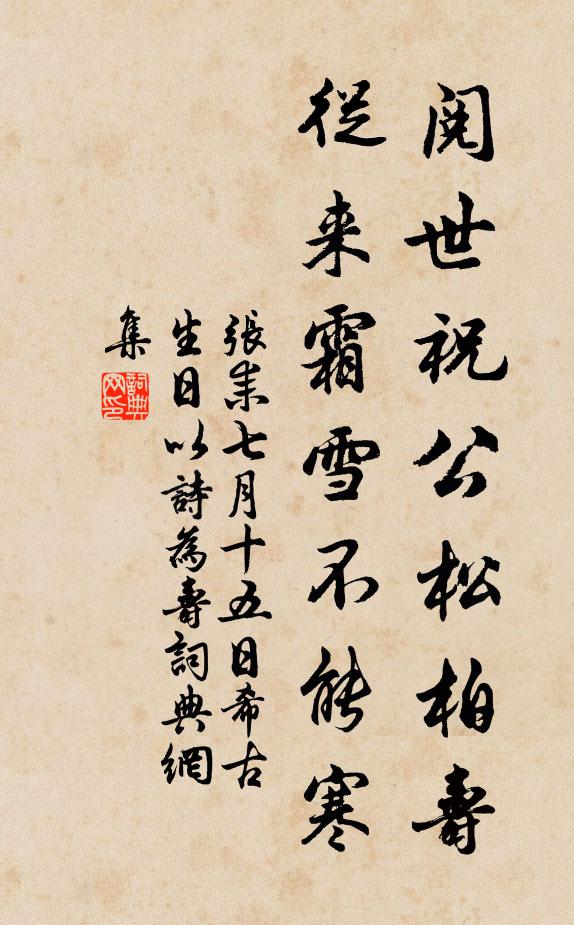 閱世祝公松柏壽
從来霜雪不能寒
張耒七月十五日希古
生日以詩為壽詞典網
集
詞典
网印